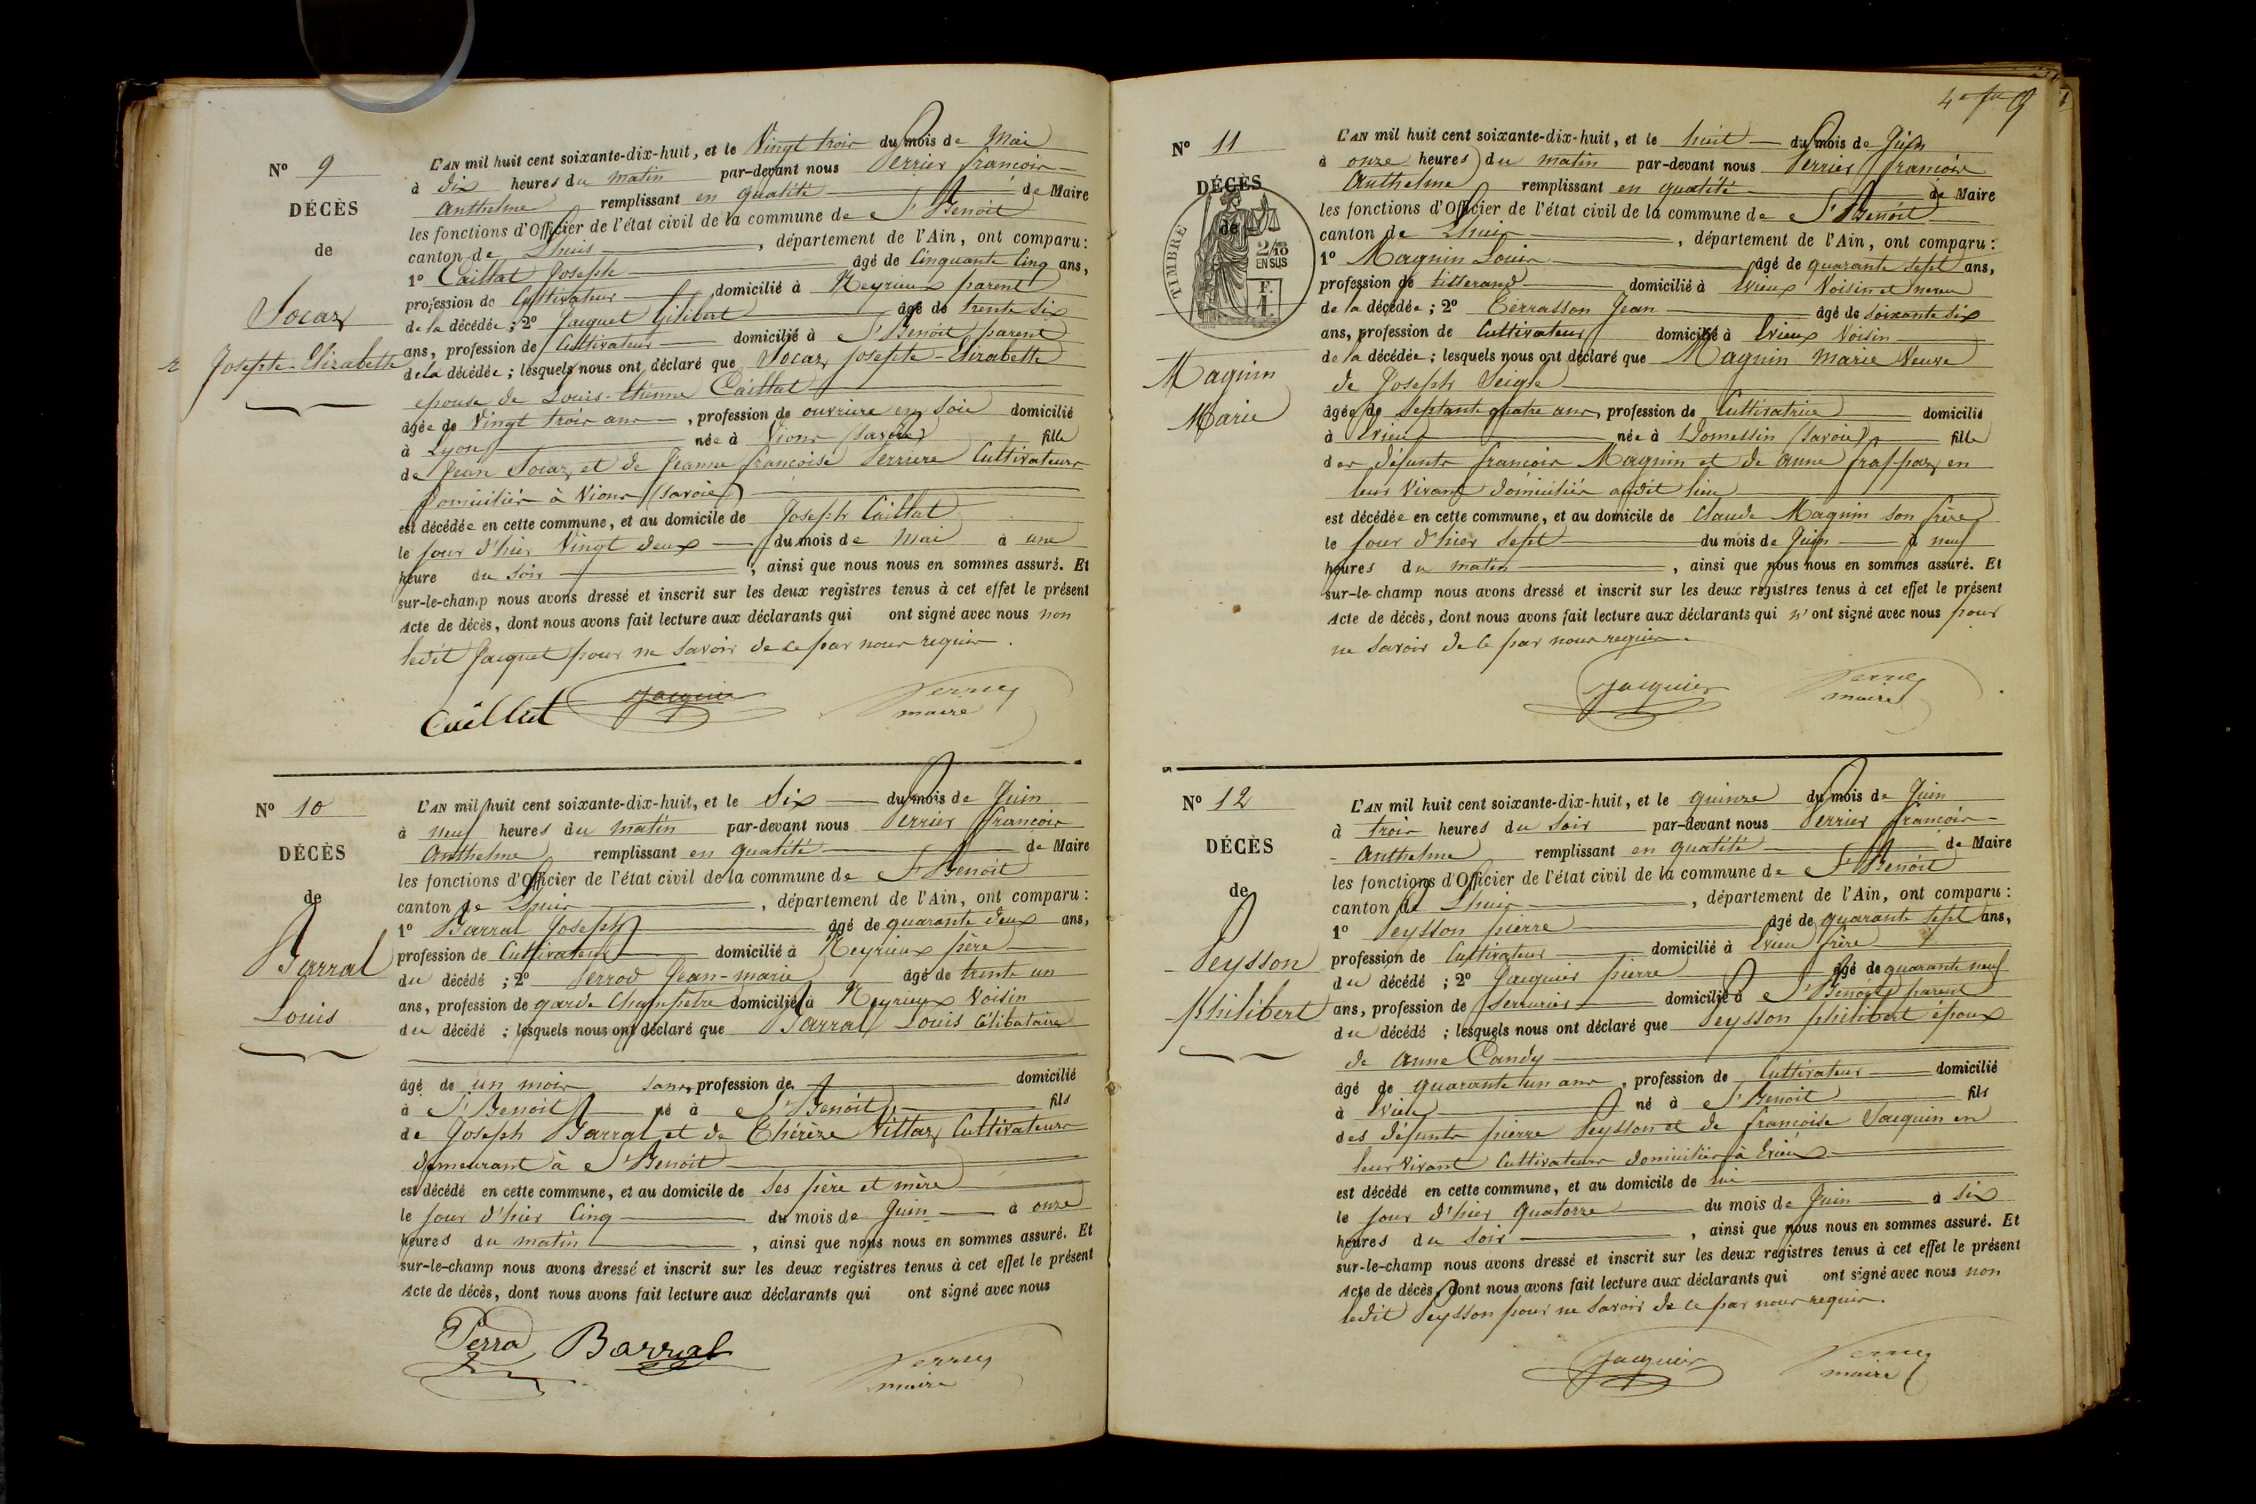 N° 9
DÉCÈS
de
Socaz
Josephte-Elizabette
L'AN mil huit cent soixante-dix-huit, et le Vingt trois du mois de Mai
à dix heures du matin par-devant nous Perrier françois
Anthelme remplissant en qualité de Maire
les fonctions d'Officier de l'état civil de la commune de St Benoit
canton de Lhuis, département de l'Ain, ont comparu:
1° Caillat Joseph âgé de Cinquante Cinq ans,
profession de Cultivateur domicilié à Neyrieux parent
de la décédée; 2° Jacquet Gilibert âgé de trente six
ans, profession de Cultivateur domicilié à St Benoit parent
de la décédée; lesquels nous ont déclaré que Socaz Josephte-Elizabette
epouse de Louis-Etienne Caillat
âgée de Vingt trois ans, profession de ouvriere en Soie domicilié
à Lyon née à Vions (Savoie) fille
de Jean Socaz et de Jeanne françoise Perriere Cultivateurs
domiciliés à Vions (Savoie)
est décédée en cette commune, et au domicile de Joseph Caillat
le jour d'hier Vingt deux du mois de Mai à une
heure du soir, ainsi que nous nous en sommes assuré. Et
sur-le-champ nous avons dressé et inscrit sur les deux registres tenus à cet effet le présent
Acte de décès, dont nous avons fait lecture aux déclarants qui ont signé avec nous non
ledit Jacquet pour ne savoir de ce par nous requis.
Caillat Jacquier Perrier
maire
N° 10
DÉCÈS
de
Barral
Louis
L'AN mil huit cent soixante-dix-huit, et le Six du mois de Juin
à neuf heures du matin par-devant nous Perrier françois
Anthelme remplissant en qualité de Maire
les fonctions d'Officier de l'état civil de la commune de St Benoit
canton de Lhuis, département de l'Ain, ont comparu:
1° Barral Joseph âgé de quarante deux ans,
profession de Cultivateur domicilié à Neyrieux père
du décédé; 2° Perrod Jean-marie âgé de trente un
ans, profession de garde Champêtre domicilié à Neyrieux Voisin
du décédé; lesquels nous ont déclaré que Barral Louis Célibataire
âgé de un mois sans, profession de domicilié
à St Benoit né à St Benoit fils
de Joseph Barral et de Thérèze Vittaz Cultivateurs
demeurant à St Benoit
est décédé en cette commune, et au domicile de ses père et mère
le jour d'hier Cinq du mois de Juin à onze
heures du matin, ainsi que nous nous en sommes assuré. Et
sur-le-champ nous avons dressé et inscrit sur les deux registres tenus à cet effet le présent
Acte de décès, dont nous avons fait lecture aux déclarants qui ont signé avec nous
Perrod Barral Perrier
maire
N° 11
DÉCÈS
de
TIMBRE
2/10
EN SUS
F.
1.
Maguin
Marie
L'AN mil huit cent soixante-dix-huit, et le huit du mois de Juin
à onze heures du matin par-devant nous Perrier françois
Anthelme remplissant en qualité de Maire
les fonctions d'Officier de l'état civil de la commune de St Benoit
canton de Lhuis, département de l'Ain, ont comparu:
1° Maguin Louis âgé de quarante sept ans,
profession de tisserand domicilié à Evieux Voisin et neveu
de la décédée; 2° Terrasson Jean âgé de soixante six
ans, profession de Cultivateur domicilié à Evieux Voisin
de la décédée; lesquels nous ont déclaré que Maguin Marie Veuve
de Joseph Seigle
âgée de Septante quatre ans, profession de Cultivatrice domicilié
à Evieu née à Domessin (Savoie) fille
des défunts françois Maguin et de anne frappaz en
leur Vivant domiciliés audit lieu
est décédée en cette commune, et au domicile de Claude Maguin son frère
le jour d'hier Sept du mois de Juin à neuf
heures du matin, ainsi que nous nous en sommes assuré. Et
sur-le-champ nous avons dressé et inscrit sur les deux registres tenus à cet effet le présent
Acte de décès, dont nous avons fait lecture aux déclarants qui n'ont signé avec nous pour
ne savoir de ce par nous requis.
Jacquier Perrier
maire
N° 12
DÉCÈS
de
Peysson
philibert
L'AN mil huit cent soixante-dix-huit, et le quinze du mois de Juin
à trois heures du soir par-devant nous Perrier françois
Anthelme remplissant en qualité de Maire
les fonctions d'Officier de l'état civil de la commune de St Benoit
canton de Lhuis, département de l'Ain, ont comparu:
1° Peysson pierre âgé de quarante sept ans,
profession de Cultivateur domicilié à Evieu frère
du décédé; 2° Jacquier pierre âgé de quarante neuf
ans, profession de Serrurier domicilié à St Benoit parent
du décédé; lesquels nous ont déclaré que Peysson philibert époux
de anne Candy
âgé de quarante un ans, profession de Cultivateur domicilié
à Evieu né à St Benoit fils
des défunts pierre Peysson et de françoise Jacquin en
leur Vivant Cultivateurs domiciliés à Evieu
est décédé en cette commune, et au domicile de lui
le jour d'hier quatorze du mois de Juin à six
heures du soir, ainsi que nous nous en sommes assuré. Et
sur-le-champ nous avons dressé et inscrit sur les deux registres tenus à cet effet le présent
Acte de décès, dont nous avons fait lecture aux déclarants qui ont signé avec nous non
ledit Peysson pour ne savoir de ce par nous requis.
Jacquier Perrier
maire